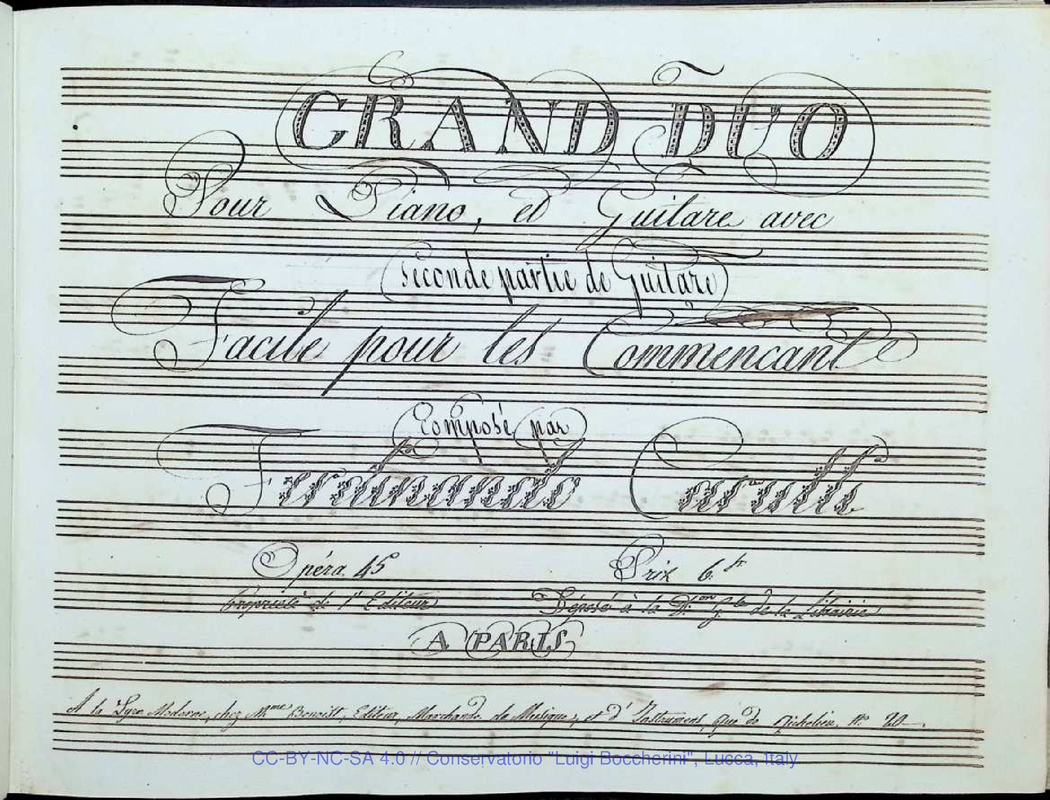 GRAND DUO
Pour Piano, et Guitare avec
seconde partie de Guitare
Facile pour les Commencant
Composé par
Ferdinando Carulli
Opéra. 45 Prix 6.fr
Propriété de l'Editeur Déposé à la D.on G.le de la Librairie
A PARIS
A la Lyre Moderne, chez Mme Benoist, Editeur, Marchande de Musique, et d'Instrument, Rue de Richelieu, No. 20
CC-BY-NC-SA 4.0 // Conservatorio "Luigi Boccherini", Lucca, Italy